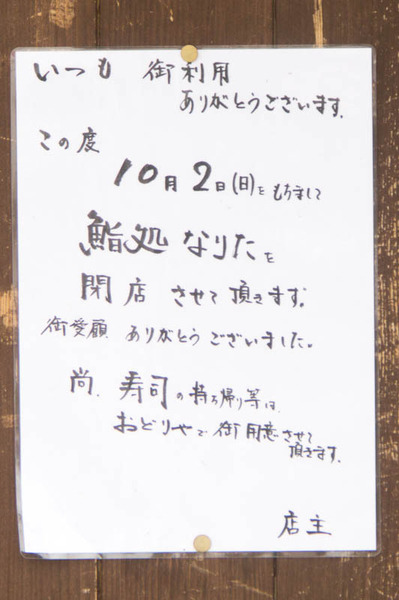 いつも 御利用
ありがとうございます。
この度
10月2日(日)を もちまして
鮨処 なりたを
閉店 させて頂きます。
御愛顧 ありがとう ございました。
尚、寿司の持ち帰り等は、
おどりやで 御用意させて
頂きます。
店主